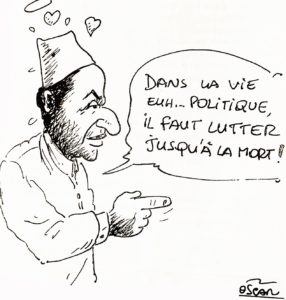 DANS LA VIE
EUH... POLITIQUE,
IL FAUT LUTTER
JUSQU'À LA MORT!
OSCAR